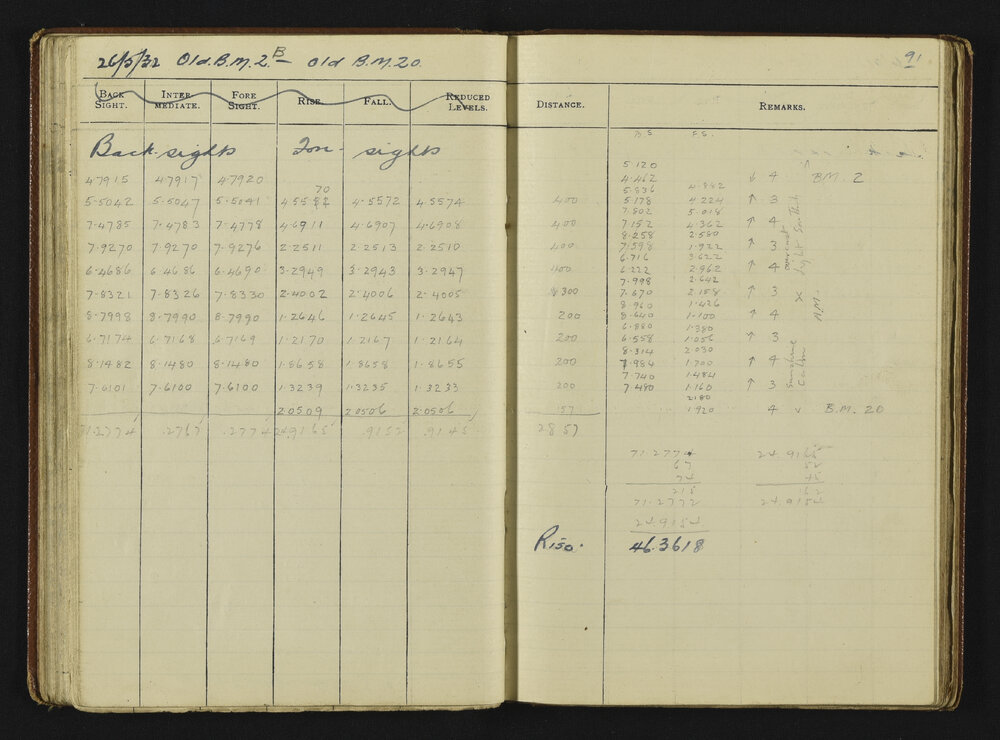 26/5/32 Old B.M. 2.B Old B.M. 20.
BACK SIGHT. INTER-MEDIATE. FORE SIGHT. RISE. FALL. REDUCED LEVELS.
Back sights Fore sights
4.7915 4.7917 4.7920
70
5.5042 5.5047 5.5041 4.5582 4.5572 4.5574
7.4785 7.4783 7.4778 4.6911 4.6907 4.6908
7.9270 7.9270 7.9276 2.2511 2.2513 2.2510
6.4686 6.4686 6.4690 3.2949 3.2943 3.2947
7.8321 7.8326 7.8330 2.4002 2.4006 2.4005
8.7998 8.7990 8.7990 1.2646 1.2645 1.2643
6.7174 6.7168 6.7169 1.2170 1.2167 1.2164
8.1482 8.1480 8.1480 1.8658 1.8658 1.8655
7.6101 7.6100 7.6100 1.3239 1.3235 1.3233
2.0509 2.0506 2.0506
71.2774 .2767 .2774 24.9165 .9152 .9145
91
DISTANCE. REMARKS.
B.S F.S.
5.120
4.462 ↓ 4 B.M. 2
5.836 4.882
400 5.178 4.224 ↑ 3
7.802 5.018
400 7.152 4.362 ↑ 4
8.258 2.580
400 7.598 1.922 ↑ 3
6.716 3.622
400 6.222 2.962 ↑ 4
7.998 2.642
300 7.670 2.158 ↑ 3
8.960 1.426
200 8.640 1.100 ↑ 4
6.880 1.380
200 6.558 1.056 ↑ 3
8.314 2.030
200 7.984 1.700 ↑ 4
7.740 1.484
200 7.480 1.160 ↑ 3
2180
157 1.920 4 ↓ B.M. 20
2857
overcast
Light South
X A.M.
Sunshine
71.2774 24.9165
67 52
74 45
215 62
71.2772 24.9154
24.9154
Rise. 46.3618